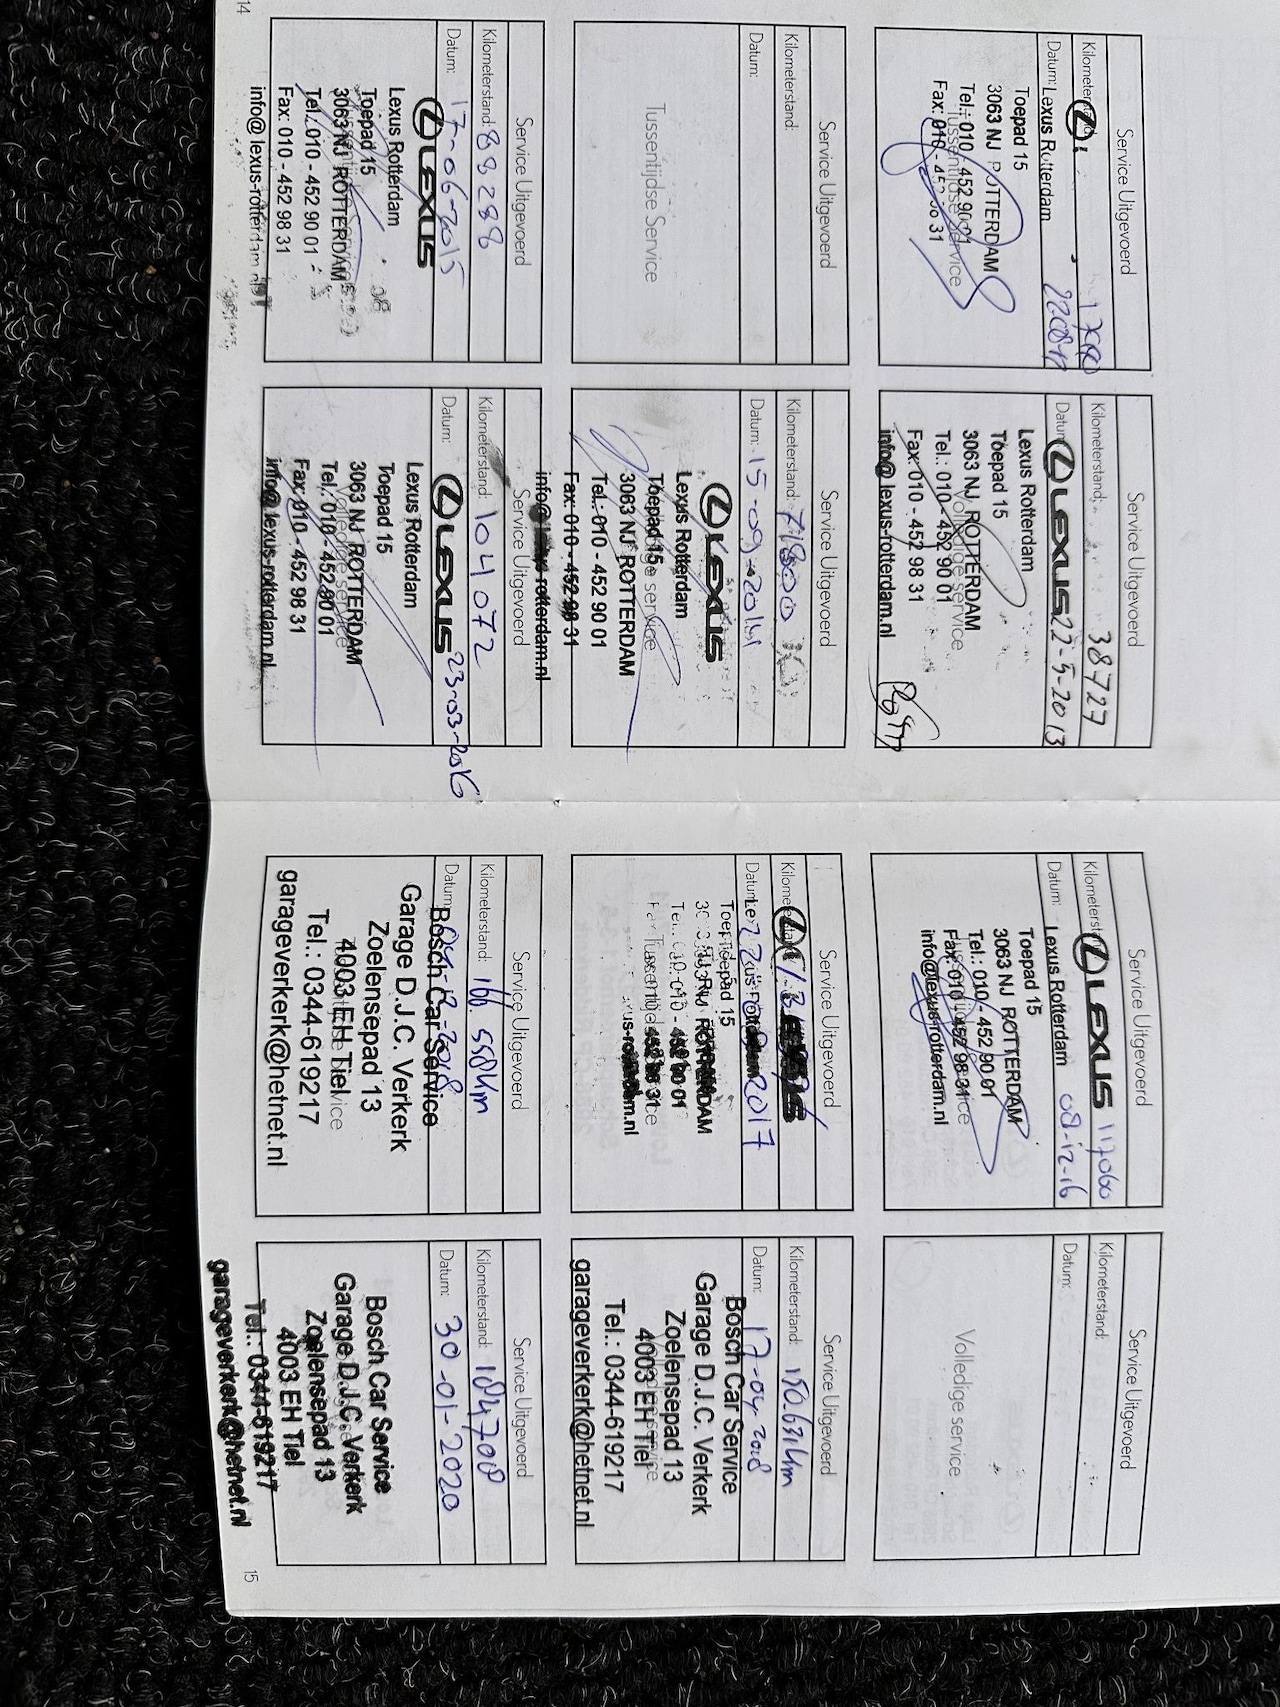 14
Service Uitgevoerd
Lexus Rotterdam
Datum:
Toepad 15
3063 NJ ROTTERDAM
Tel.: 010 - 452 90 01
Tussentijdse Service
Service Uitgevoerd
Kilometerstand: 38727
Datum: 22-5-2013
LEXUS
Lexus Rotterdam
Toepad 15
3063 NJ ROTTERDAM
Volledige service
Tel.: 010 - 452 90 01
Fax: 010 - 452 98 31
info@lexus-rotterdam.nl
Service Uitgevoerd
Kilometerstand:
Datum:
Tussentijdse Service
Service Uitgevoerd
Kilometerstand: 71800
Datum: 15-09-2014
LEXUS
Lexus Rotterdam
Toepad 15
3063 NJ ROTTERDAM
Tel.: 010 - 452 90 01
Fax: 010 - 452 98 31
Service Uitgevoerd
Kilometerstand: 88288
Datum: 17-06-2015
LEXUS
Lexus Rotterdam
Toepad 15
3063 NJ ROTTERDAM
Tel.: 010 - 452 90 01
Fax: 010 - 452 98 31
Service Uitgevoerd
Kilometerstand: 104072
Datum: 23-03-2016
LEXUS
Lexus Rotterdam
Toepad 15
3063 NJ ROTTERDAM
Volledige service
Tel.: 010 - 452 90 01
Fax: 010 - 452 98 31
info@lexus-rotterdam.nl
Service Uitgevoerd
LEXUS 117060
Datum: 08-12-16
Lexus Rotterdam
Toepad 15
3063 NJ ROTTERDAM
Tel.: 010 - 452 90 01
Fax: 010 - 452 98 31
info@lexus-rotterdam.nl
Service Uitgevoerd
Kilometerstand:
Datum:
Volledige service
Service Uitgevoerd
2017
Service Uitgevoerd
Kilometerstand: 150.631 km
Datum: 17-04-2018
Bosch Car Service
Garage D.J.C. Verkerk
Zoelensepad 13
4003 EH Tiel
Tel.: 0344-619217
garageverkerk@hetnet.nl
Service Uitgevoerd
Kilometerstand: 166.558 km
Datum:
Bosch Car Service
Garage D.J.C. Verkerk
Zoelensepad 13
4003 EH Tiel
Tel.: 0344-619217
garageverkerk@hetnet.nl
Service Uitgevoerd
Kilometerstand: 184708
Datum: 30-01-2020
Bosch Car Service
Garage D.J.C. Verkerk
Zoelensepad 13
4003 EH Tiel
Tel.: 0344-619217
garageverkerk@hetnet.nl
15